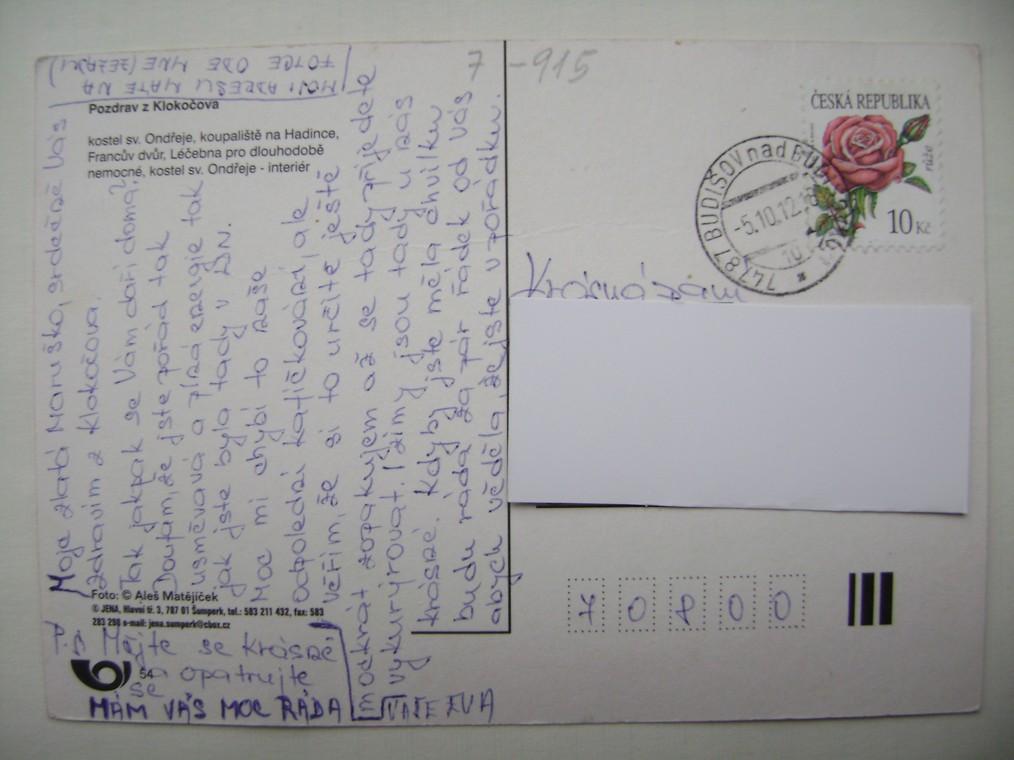 7 - 915
MOJI ADRESU MÁTE NA
FOTCE ODE MNE (ZEZADU)
Pozdrav z Klokočova
kostel sv. Ondřeje, koupaliště na Hadince,
Francův dvůr, Léčebna pro dlouhodobě
nemocné, kostel sv. Ondřeje - interiér
Moje zlatá Maruško, srdečně Vás
zdravím z Klokočova.
Tak jakpak se Vám daří doma?
Doufám, že jste pořád tak
usměvavá a plná energie tak
jak jste byla tady v DN.
Moc mi chybí to naše
odpolední kafíčkování, ale
věřím, že si to určitě ještě
mockrát zopakujem až se tady přijedete
vykurýrovat. I zimy jsou tady u nás
krásné. Kdyby jste měla chvilku
budu ráda za pár řádek od Vás
abych věděla, že jste v pořádku.
Foto: © Aleš Matějíček
© JENA, Hlavní tř. 3, 787 01 Šumperk, tel.: 583 211 432, fax: 583
283 298 e-mail: jena.sumperk@cbox.cz
P.S Mějte se krásně
a opatrujte
se
54
MÁM VÁS MOC RÁDA
VAŠE EVA
ČESKÁ REPUBLIKA
růže
10 Kč
747 87 BUDIŠOV nad BUD
-5.10.12
Krásná paní
7 0 8 0 0